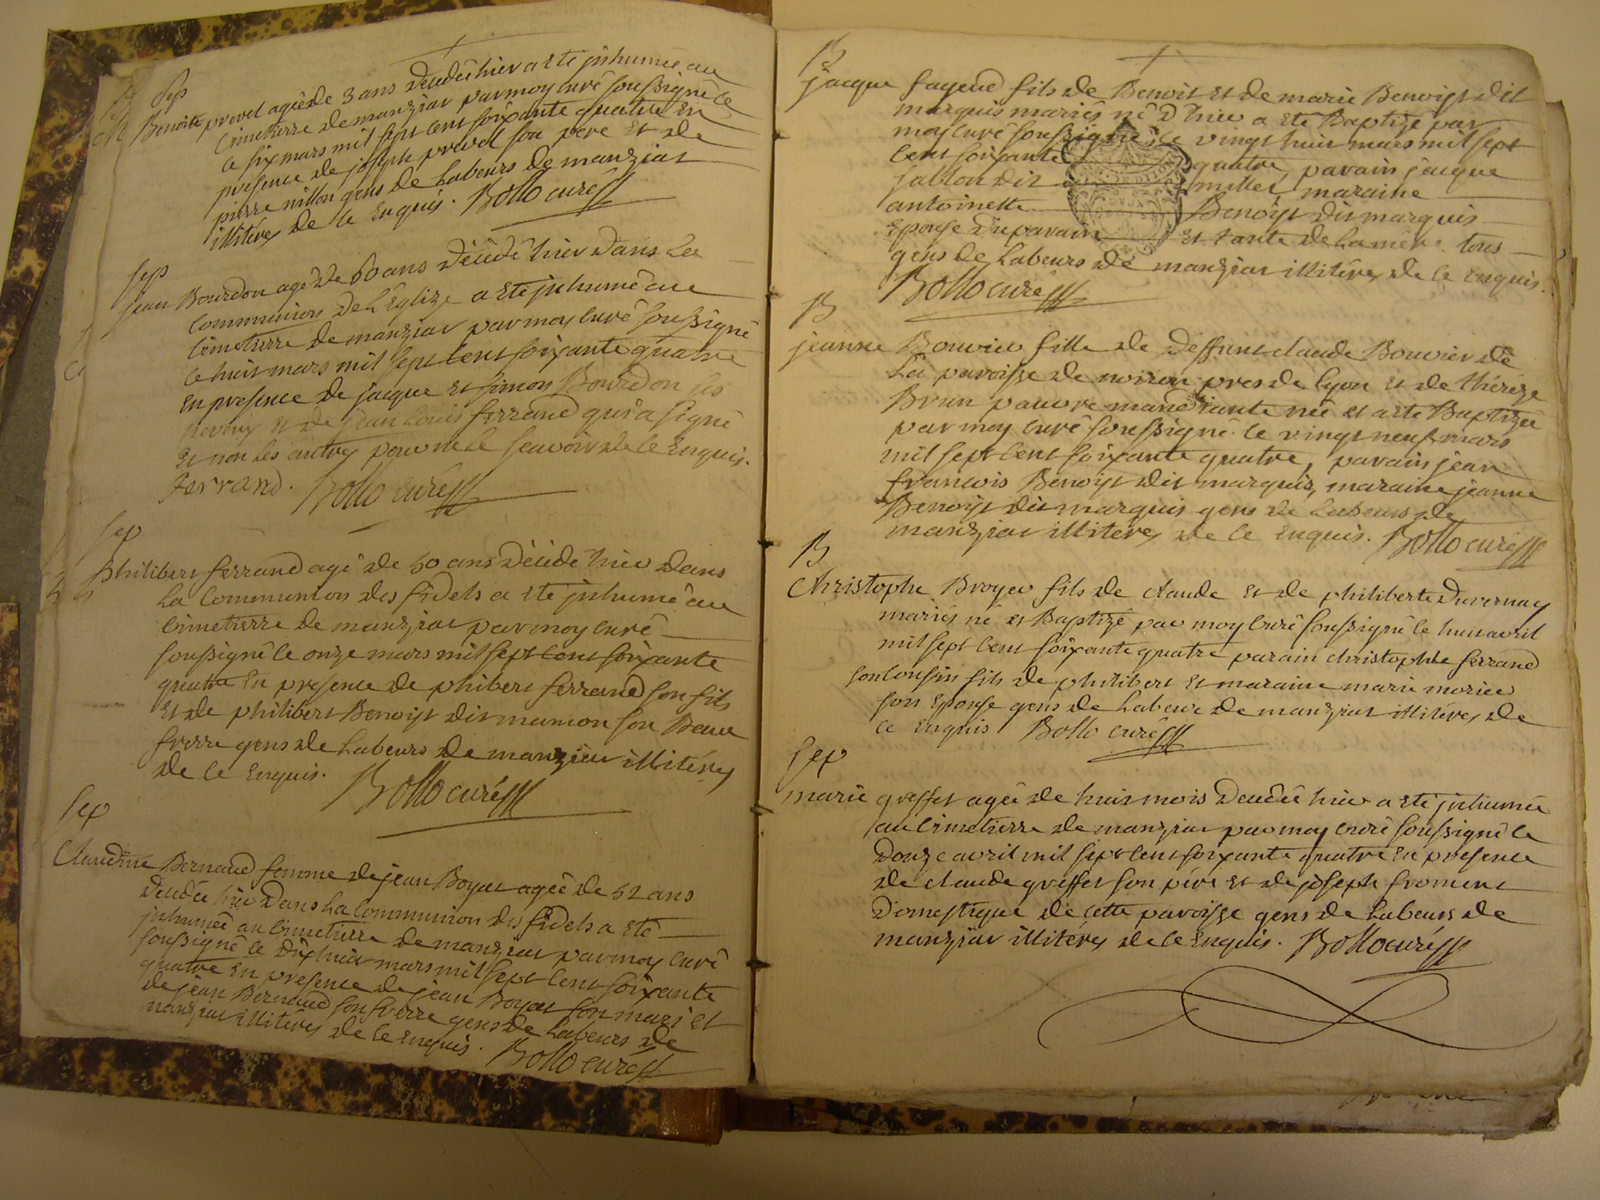 Sep
Benoite prevel agée de 3 ans deudée hier a eté inhumée au
Cimetierre de manziat par moy curé soussigné le
Ce six mars mil sept cent soixante quatre en
presence de joseph prevel son pere et de
pierre nillon gens de Labeurs de manziat
illitérés de ce Enquis. Bollo curé
Sep
jean Bourdon agé de 60 ans décédé hier dans La
Communion de L'Eglize a eté inhumé au
Cimetierre de manziat par moy curé soussigné
Le huit mars mil sept cent soixante quatre
En presence de jacque et simon Bourdon ses
neveux et de jean Louis ferrand qui a signé
Et non les autres pour ne le scavoir de ce Enquis.
ferrand. Bollo curé
Sep
philibert ferrand agé de 50 ans décédé hier dans
La Communion des fidels a eté inhumé au
Cimetierre de manziat par moy curé
soussigné le onze mars mil sept cent soixante
quatre En presence de phibert ferrand son fils
Et de philibert Benoist dit manion son Beau
frerre gens de Labeurs de manziat illitérés
de ce Enquis. Bollo curé
Sep
Claudine Bernard femme de jean Boyat agée de 52 ans
deudée hier dans La Communion des fidels a eté
inhumée au Cimetierre de manziat par moy curé
soussigné le dix huit mars mil sept cent soixante
quatre En presence de jean Boyat son mari et
de jean Bernard son frerre gens de Labeurs de
manziat illitérés de ce Enquis. Bollo curé
B
jacque fageud fils de Benoit et de marie Benoist dit
marquis mariés né d'hier a eté Baptizé par
moy curé soussigné le vingt huit mars mil sept
cent soixante quatre, parain jacque
jablon dit millet maraine
antoinette Benoist dit marquis
Epouse du parain et tante de la mére tous
gens de Labeurs de manziat illitérés de ce Enquis.
Bollo curé
B
jeanne Bouvier fille de deffunt claude Bouvier de
La paroisse de noiron pres de lyon et de thereze
Brun pauvre mandiante née et a eté Baptizée
par moy curé soussigné le vingt neuf mars
mil sept cent soixante quatre, parain jean
francois Benoist dit marquis, maraine jeanne
Benoist dit marquis gens de Labeurs de
manziat illitérés de ce Enquis. Bollo curé
B
Christophe Broyer fils de claude et de philiberte duvernay
mariés né et Baptizé par moy curé soussigné le huit avril
mil sept cent soixante quatre parain christophle ferrand
son cousin fils de philibert et maraine marie morier
son Epouse gens de Labeur de manziat illitérés de
ce Enquis Bollo curé
Sep
marie greffet agée de huit mois deudée hier a eté inhumée
au Cimetierre de manziat par moy curé soussigné le
douze avril mil sept cent soixante quatre En presence
de claude greffet son pére et de joseph froment
domestique de cette paroisse gens de Labeurs de
manziat illitérés de ce Enquis. Bollo curé